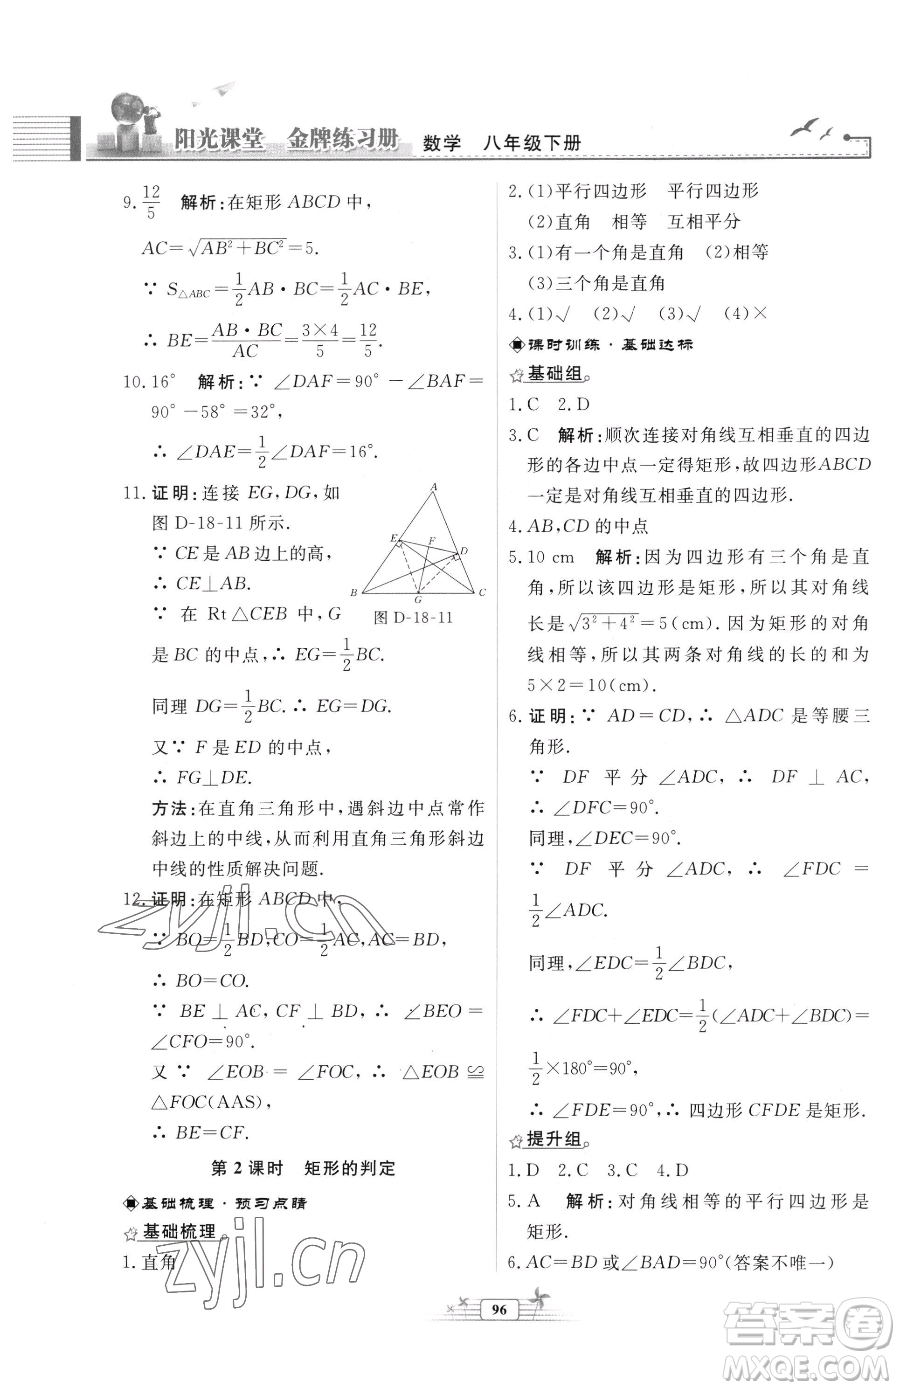 阳光课堂 金牌练习册 数学 八年级下册
9. 12/5 解析:在矩形 ABCD 中,
AC=√(AB²+BC²)=5.
∵ S△ABC=1/2AB·BC=1/2AC·BE,
∴ BE=(AB·BC)/AC=(3×4)/5=12/5
10. 16° 解析:∵ ∠DAF=90°-∠BAF=
90°-58°=32°,
∴ ∠DAE=1/2∠DAF=16°.
11. 证明:连接 EG,DG,如
图 D-18-11 所示.
∵ CE是AB边上的高,
∴ CE⊥AB.
∵ 在 Rt△CEB 中,G
是 BC 的中点,∴ EG=1/2BC.
A
E
F
D
B
G
C
图 D-18-11
同理 DG=1/2BC.∴ EG=DG.
又∵ F 是 ED 的中点,
∴ FG⊥DE.
方法:在直角三角形中,遇斜边中点常作
斜边上的中线,从而利用直角三角形斜边
中线的性质解决问题.
12. 证明:在矩形 ABCD 中,
∵ BO=1/2BD,CO=1/2AC,AC=BD,
∴ BO=CO.
∵ BE⊥AC,CF⊥BD,∴ ∠BEO=
∠CFO=90°.
又∵ ∠EOB=∠FOC,∴ △EOB≌
△FOC(AAS),
∴ BE=CF.
第 2 课时 矩形的判定
基础梳理·预习点睛
基础梳理
1. 直角
2. (1)平行四边形 平行四边形
(2)直角 相等 互相平分
3. (1)有一个角是直角 (2)相等
(3)三个角是直角
4. (1)√ (2)√ (3)√ (4)×
课时训练·基础达标
基础组
1. C 2. D
3. C 解析:顺次连接对角线互相垂直的四边
形的各边中点一定得矩形,故四边形ABCD
一定是对角线互相垂直的四边形.
4. AB,CD 的中点
5. 10 cm 解析:因为四边形有三个角是直
角,所以该四边形是矩形,所以其对角线
长是√(3²+4²)=5(cm).因为矩形的对角
线相等,所以其两条对角线的长的和为
5×2=10(cm).
6. 证明:∵ AD=CD,∴ △ADC 是等腰三
角形.
∵ DF 平分∠ADC,∴ DF⊥AC,
∴ ∠DFC=90°.
同理,∠DEC=90°.
∵ DF 平分∠ADC,∴ ∠FDC=
1/2∠ADC.
同理,∠EDC=1/2∠BDC,
∴ ∠FDC+∠EDC=1/2(∠ADC+∠BDC)=
1/2×180°=90°,
∴ ∠FDE=90°,∴ 四边形 CFDE 是矩形.
提升组
1. D 2. C 3. C 4. D
5. A 解析:对角线相等的平行四边形是
矩形.
6. AC=BD或∠BAD=90°(答案不唯一)
96
zyjl.cn
zyjl.cn
答案圈
MXQE.COM